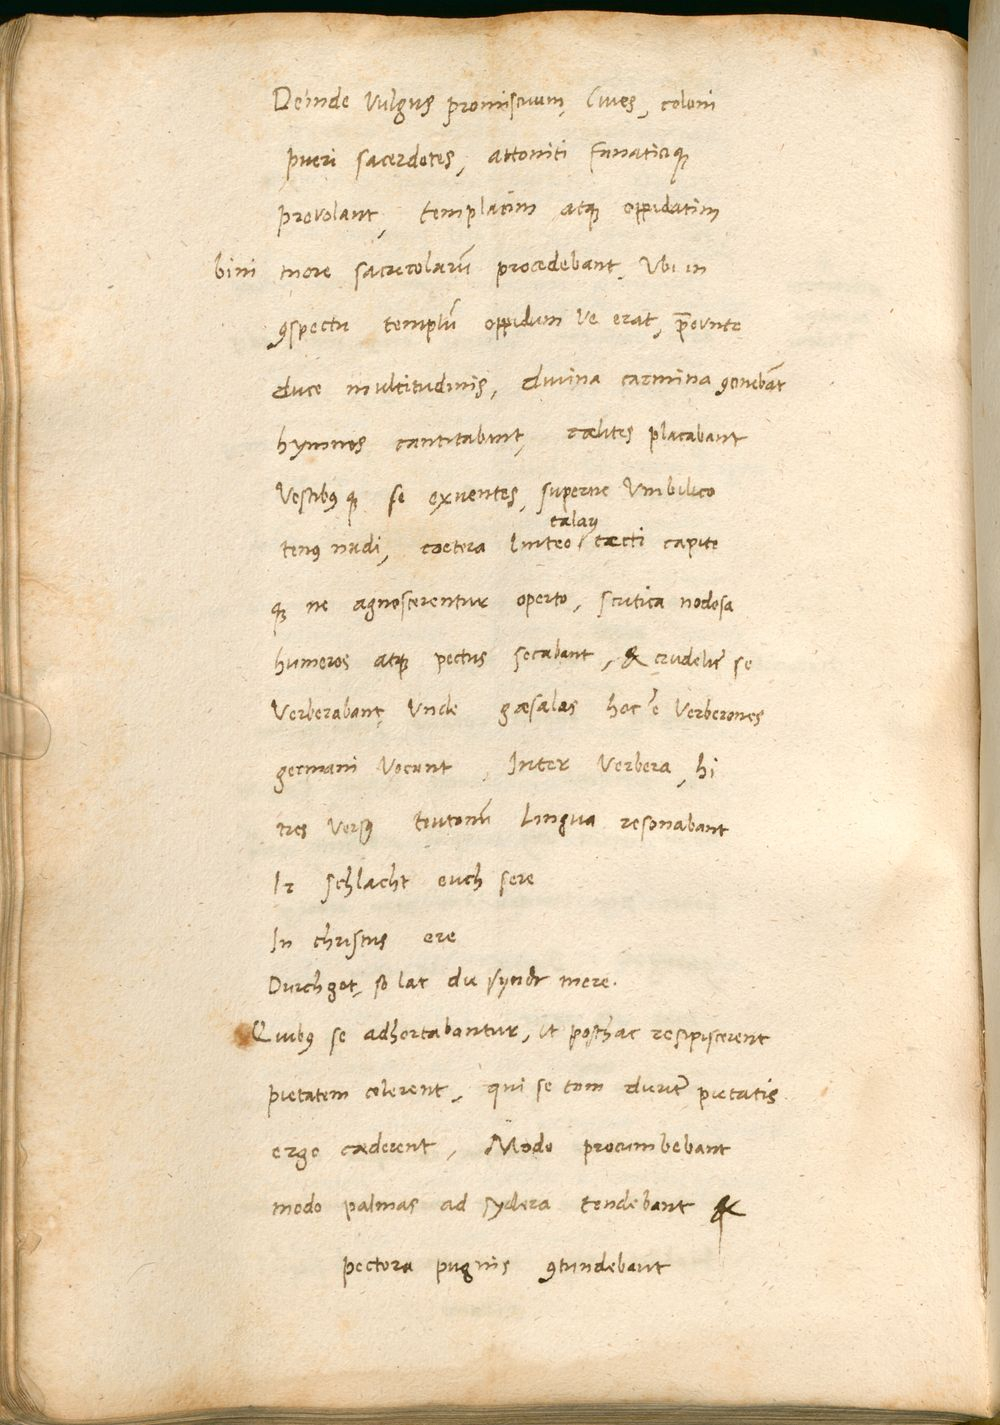 Deinde Vulgus promiscuum, Ciues, coloni
pueri sacerdotes, attoniti fanaticiqꝫ
provolant, templatim atqꝫ oppidatim
bini more sacricolarū procedebant, Vbi in
ꝯspectu templū oppidum ve erat, p̄eunte
duce multitudinis, diuina carmina ꝯcinebāt
hymnos cantitabant, cælites placabant
Vestibꝰ qꝫ se exuentes, superne Vmbilico
tenꝰ nudi, cætera linteo talari tæcti capite
qꝫ ne agnoscerentur operto, scutica nodosa
humeros atqꝫ pectus secabant, & crudelit̄ se
Verberabant, Vnde gæsalas hoc ē Verberones
germani Vocant, Inter Verbera, hi
tres Versꝰ teutonū lingua resonabant
Ir schlacht euch sere
In christus ere
Durch got, so lat die synde mere.
Quibꝰ se adhortabantur, vt posthac resipiscerent
pietatem colerent, qui se tam durit̄ pietatis
ergo cæderent, Modo procumbebant
modo palmas ad sydera tendebant &
pectora pugnis ꝯtundebant